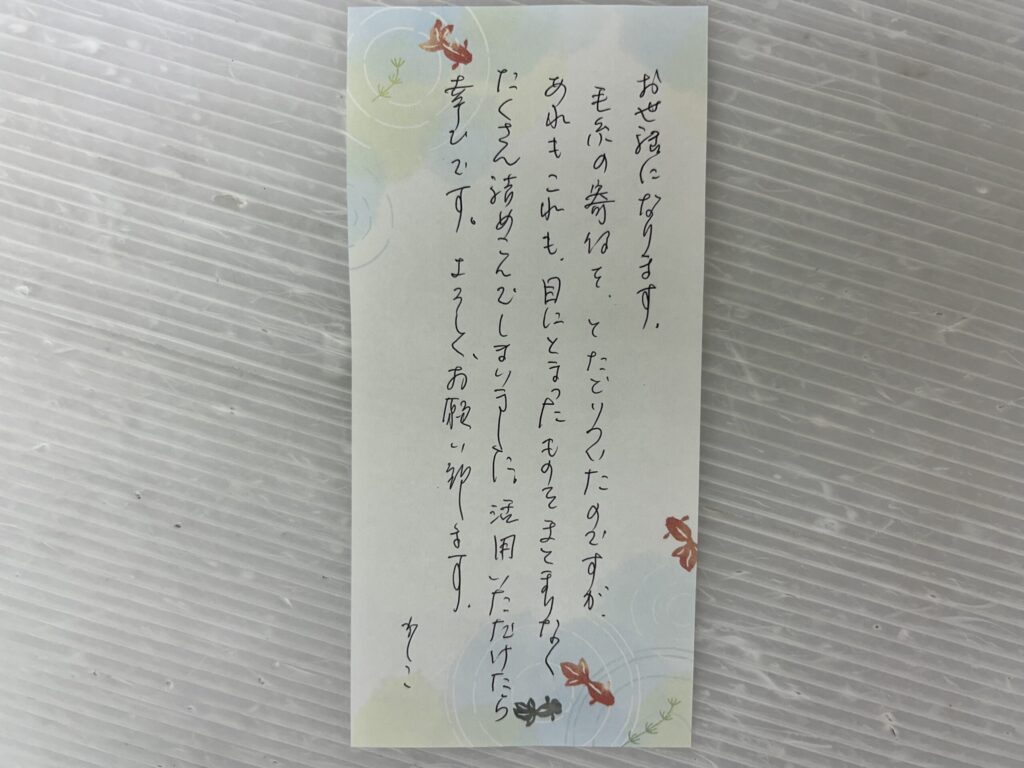 お世話になります。
毛糸の寄付を、とたどりついたのですが、
あれもこれも、目にとまったものをまとまりなく
たくさん詰めこんでしまいました。活用いただけたら
幸いです。よろしく、お願い致します。